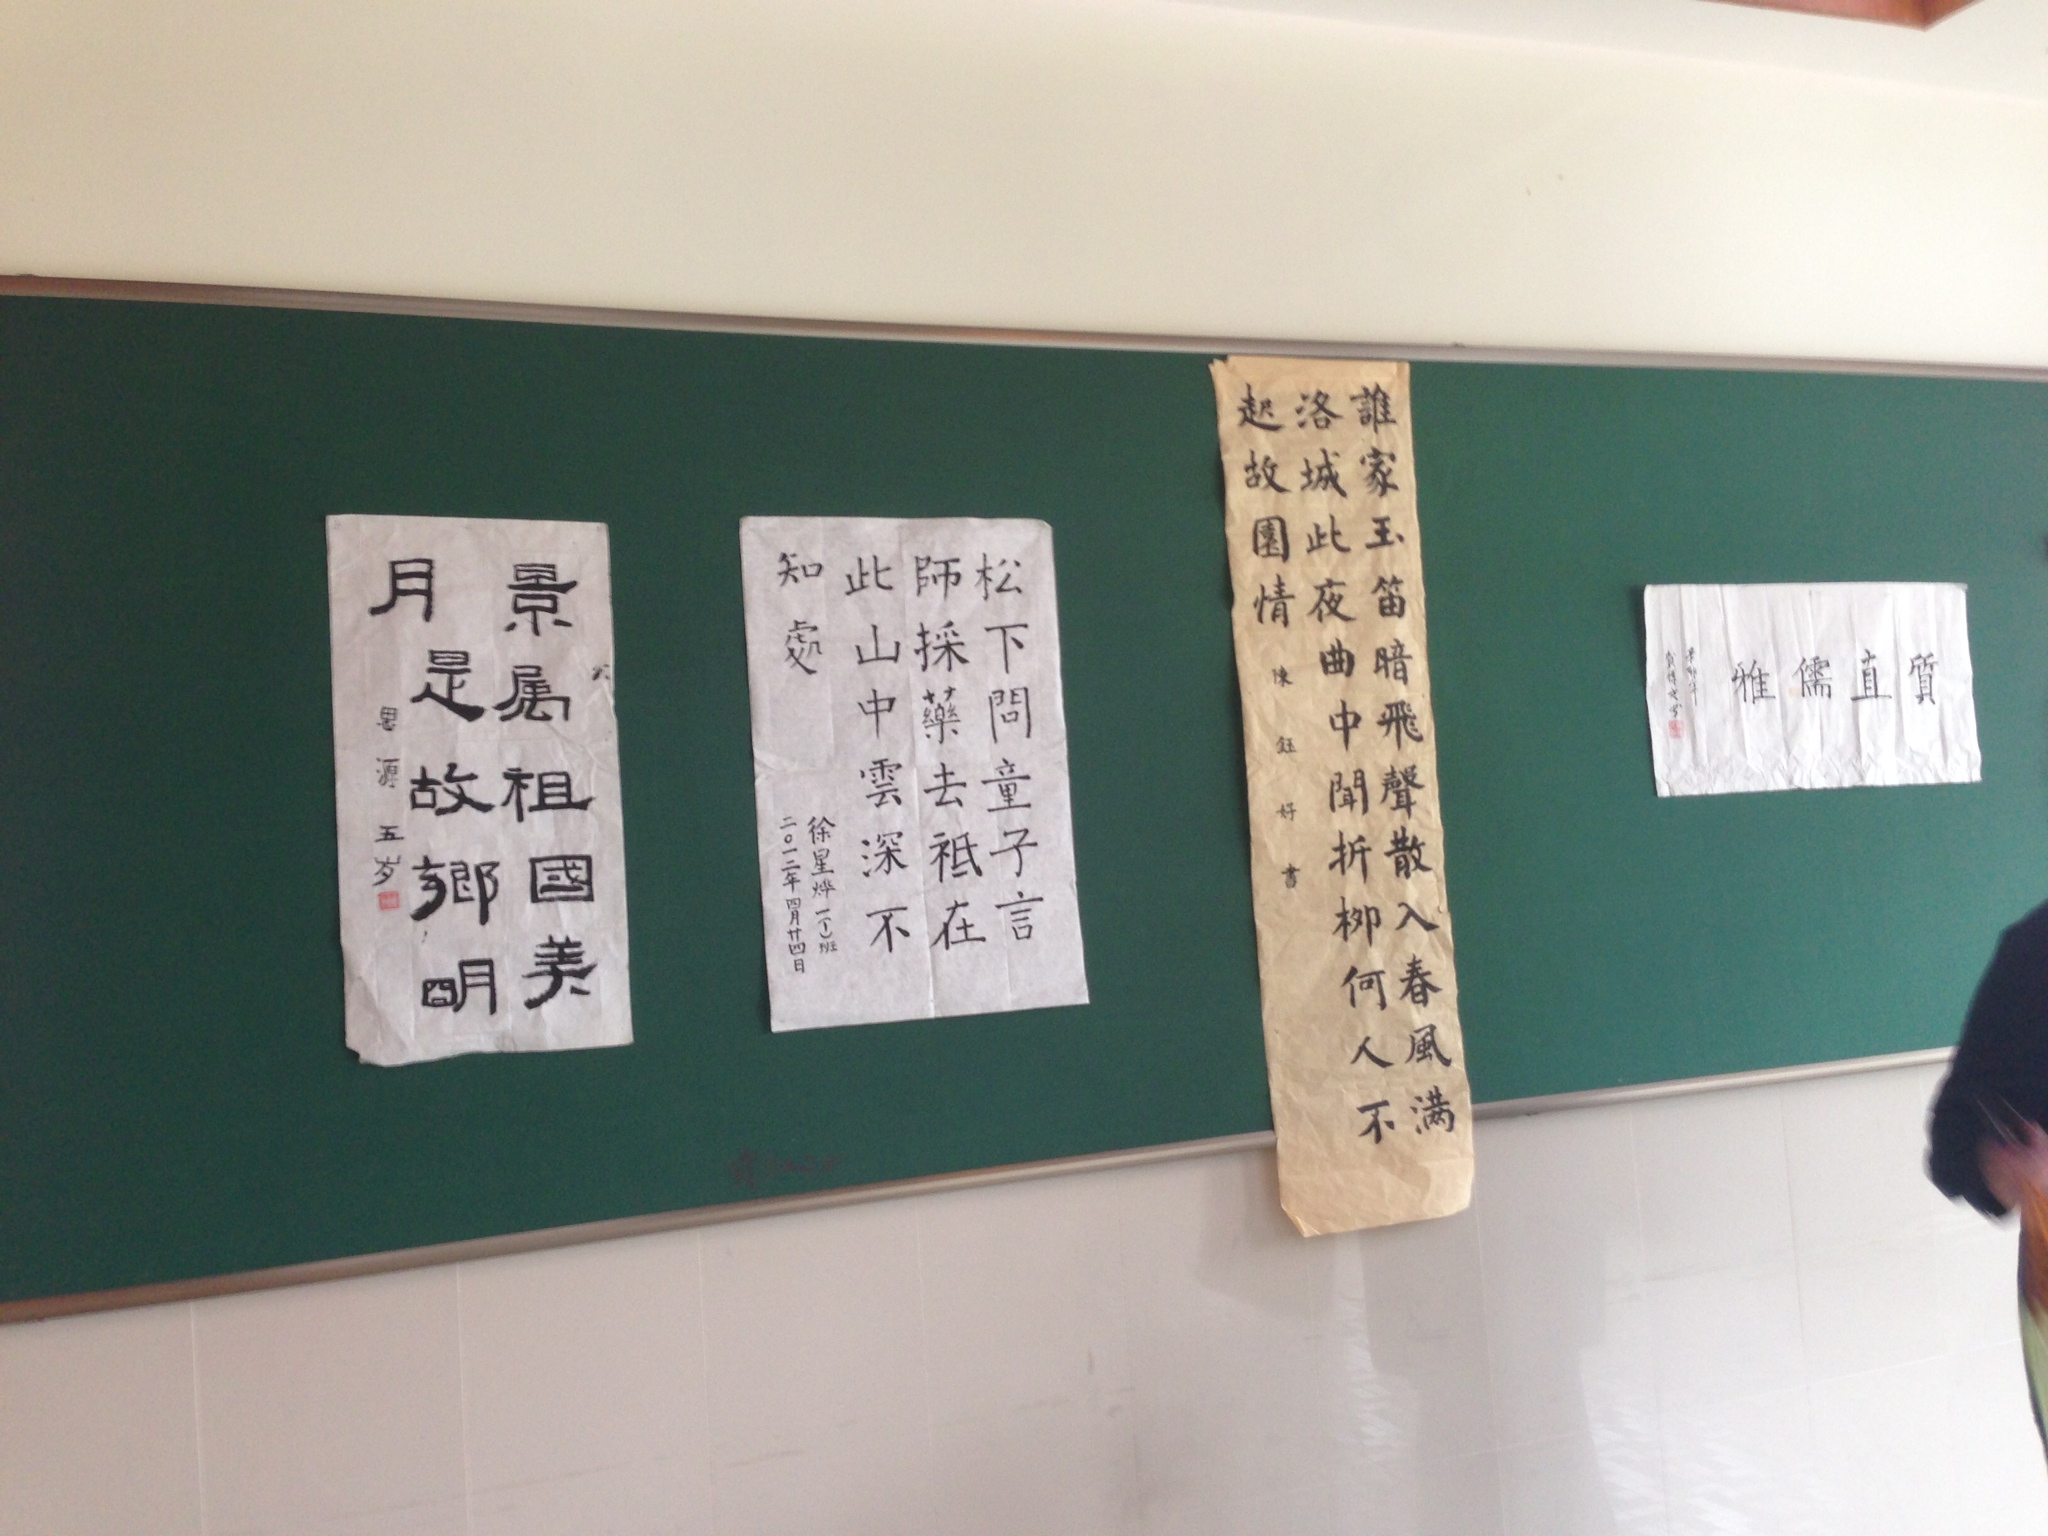 景属祖國美
月是故鄉明
思源五岁
松下問童子言
師採藥去祗在
此山中雲深不
知處
徐星烨一(1)班
二〇一二年四月廿四日
誰家玉笛暗飛聲散入春風满
洛城此夜曲中聞折柳何人不
起故園情
陳鈺好書
質直儒雅